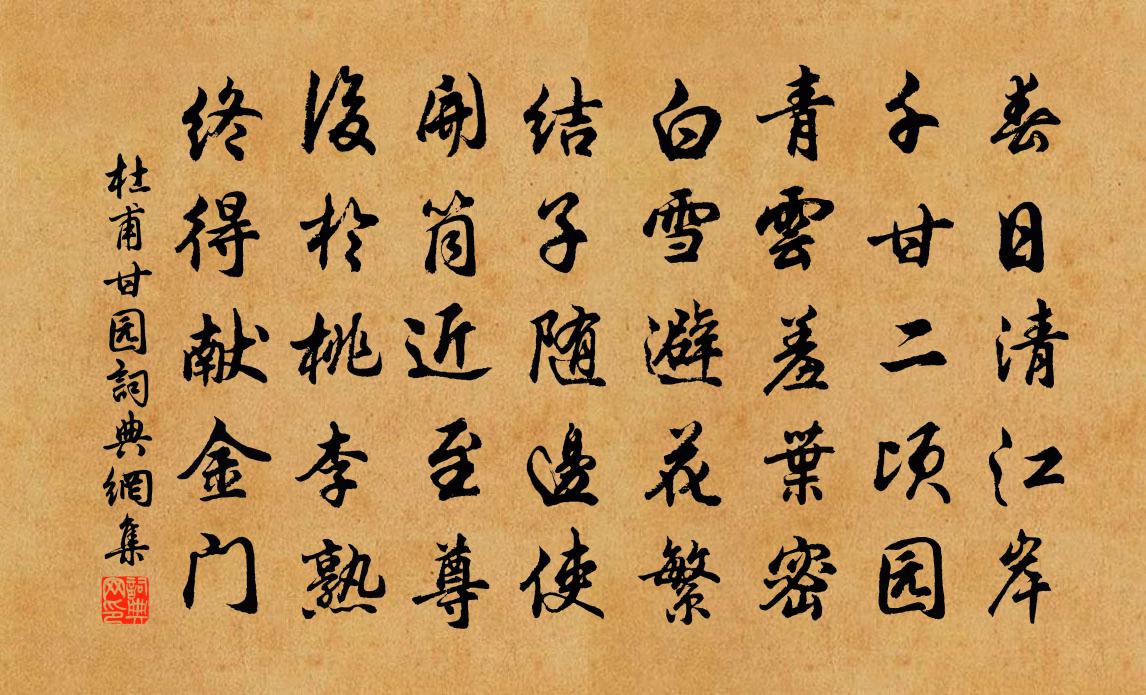 春日清江岸
千甘二顷园
青雲羞葉密
白雪避花繁
结子随邊使
開筒近至尊
後於桃李熟
终得献金门
杜甫甘园詞典網集
詞典
网印